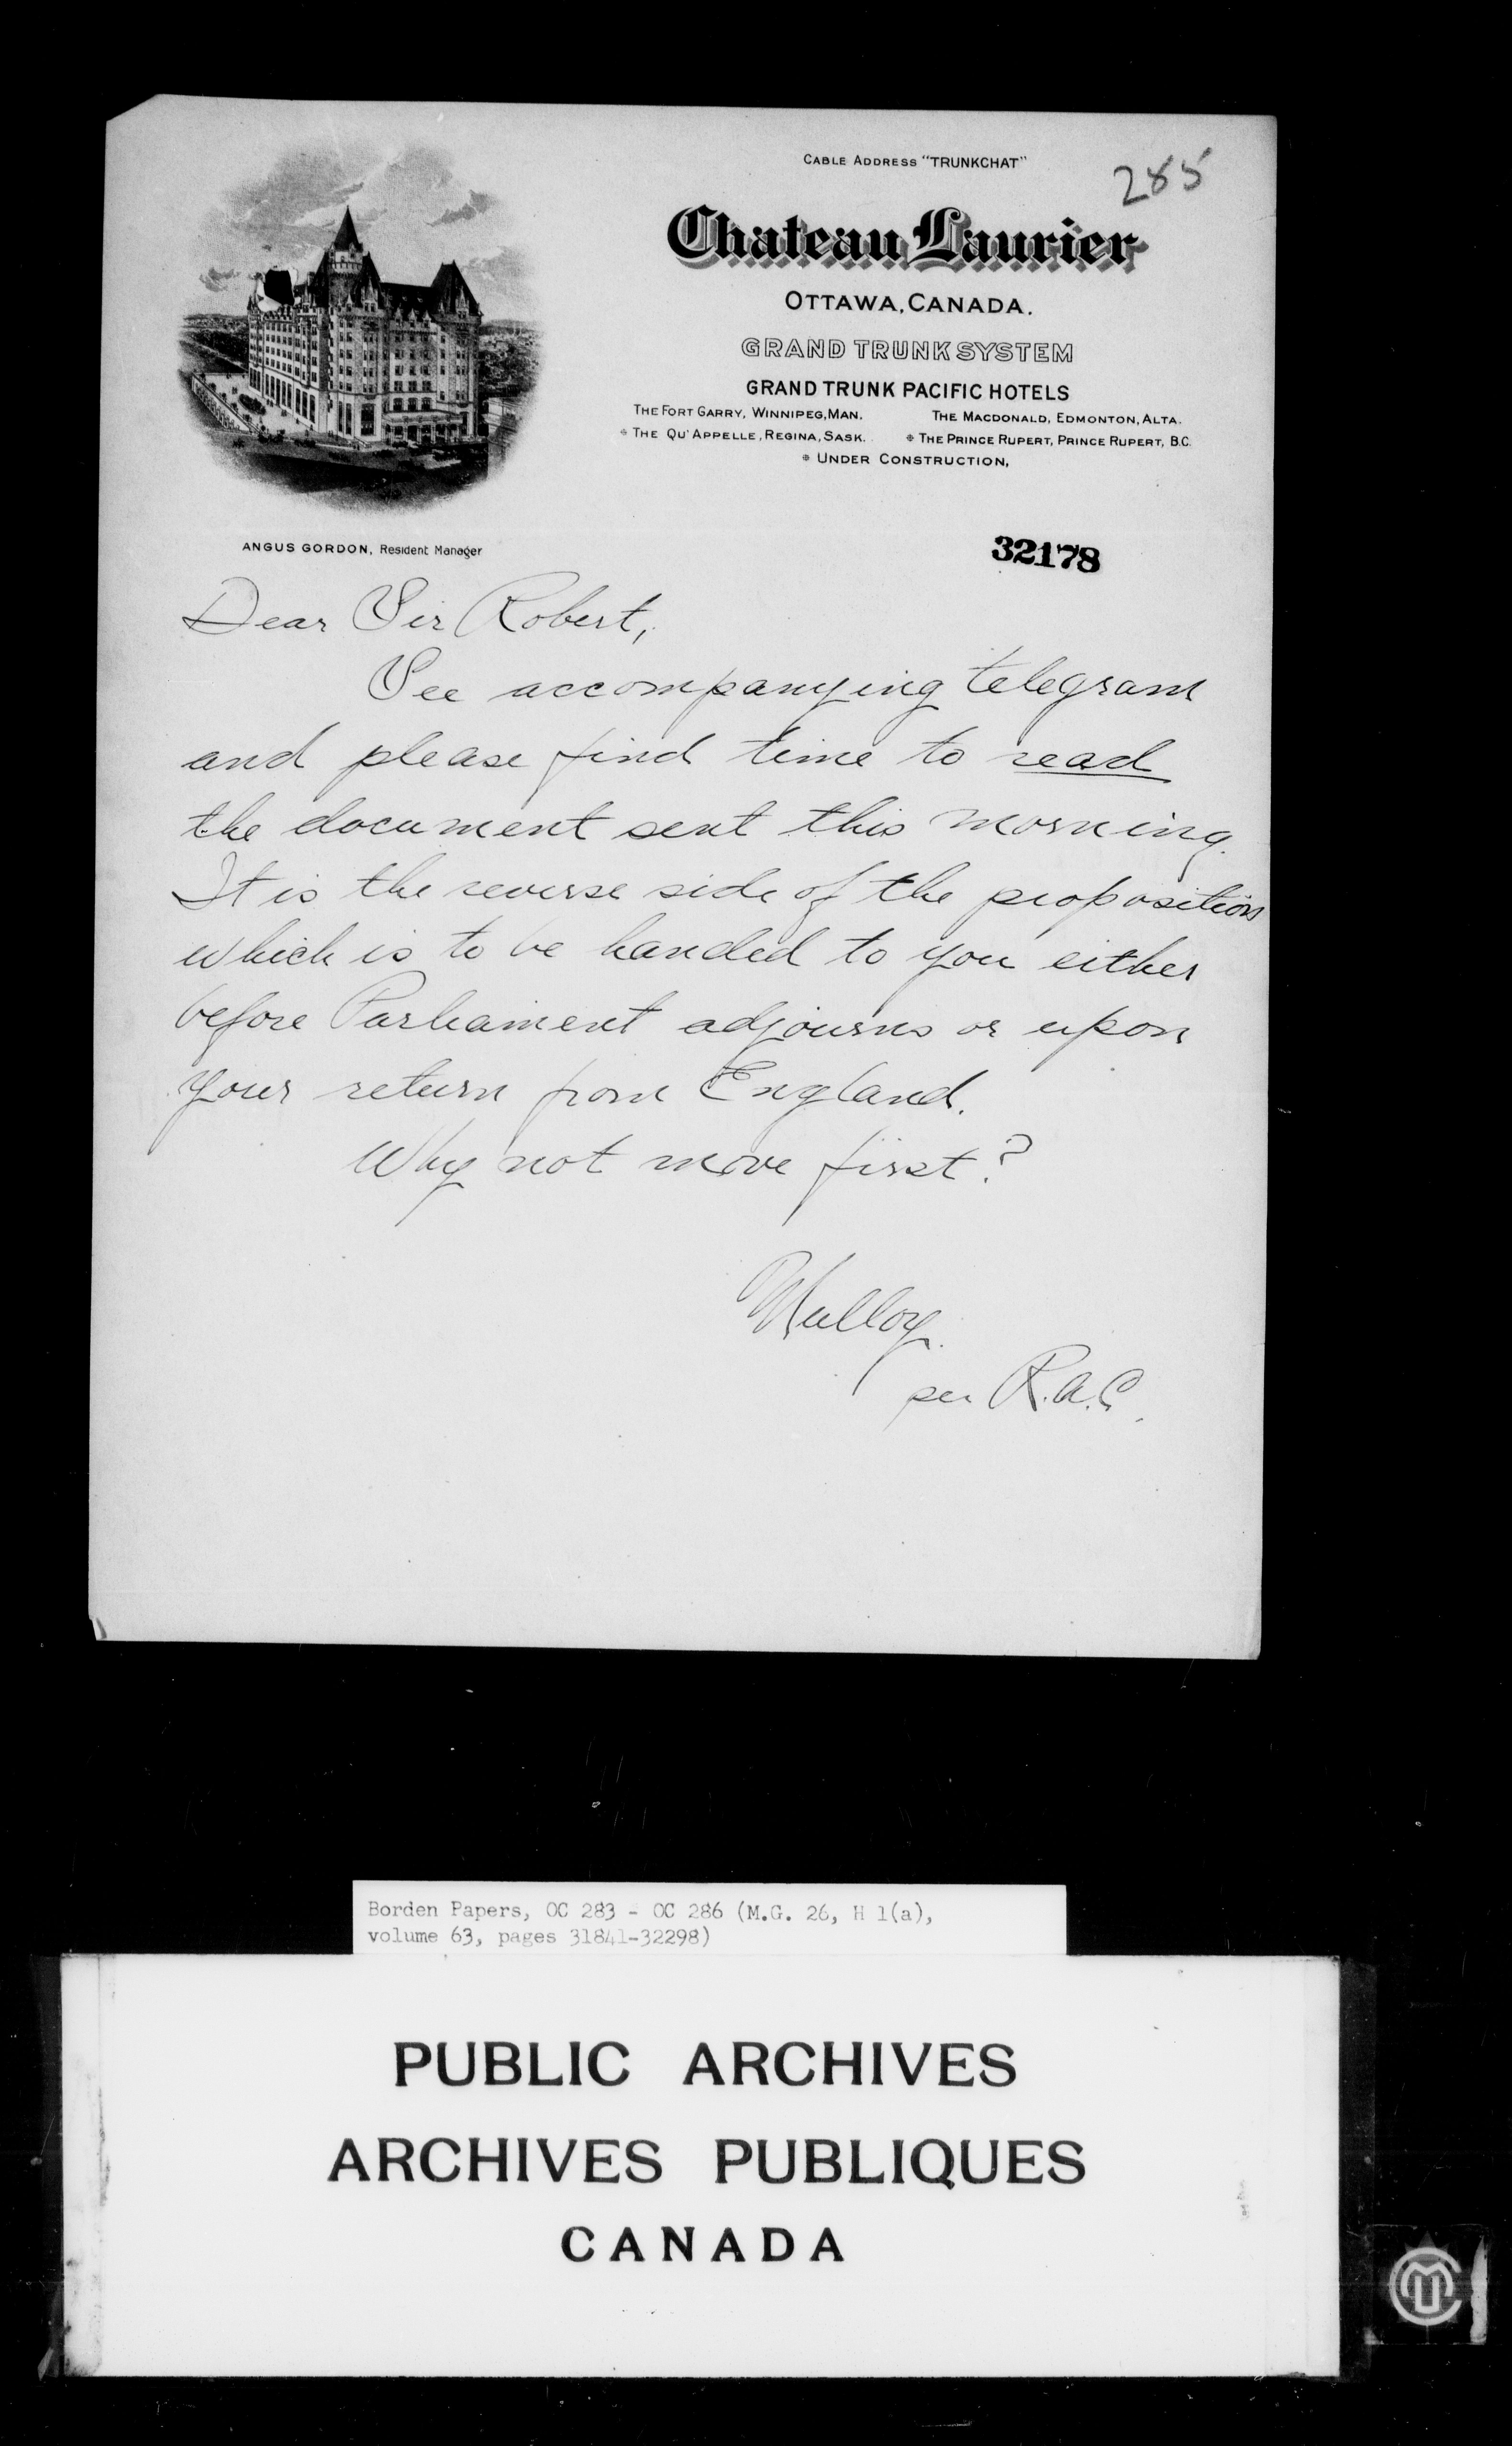 CABLE ADDRESS "TRUNKCHAT"
285
Chateau Laurier
OTTAWA, CANADA.
GRAND TRUNK SYSTEM
GRAND TRUNK PACIFIC HOTELS
THE FORT GARRY, WINNIPEG, MAN. THE MACDONALD, EDMONTON, ALTA.
* THE QU'APPELLE, REGINA, SASK. * THE PRINCE RUPERT, PRINCE RUPERT, B.C.
* UNDER CONSTRUCTION,
ANGUS GORDON, Resident Manager
32178
Dear Sir Robert,
See accompanying telegram
and please find time to read
the document sent this morning.
It is the reverse side of the proposition
which is to be handed to you either
before Parliament adjourns or upon
your return from England.
Why not move first?
Mulloy.
per R.A.C.
Borden Papers, OC 283 - OC 286 (M.G. 26, H 1(a),
volume 63, pages 31841-32298)
PUBLIC ARCHIVES
ARCHIVES PUBLIQUES
CANADA